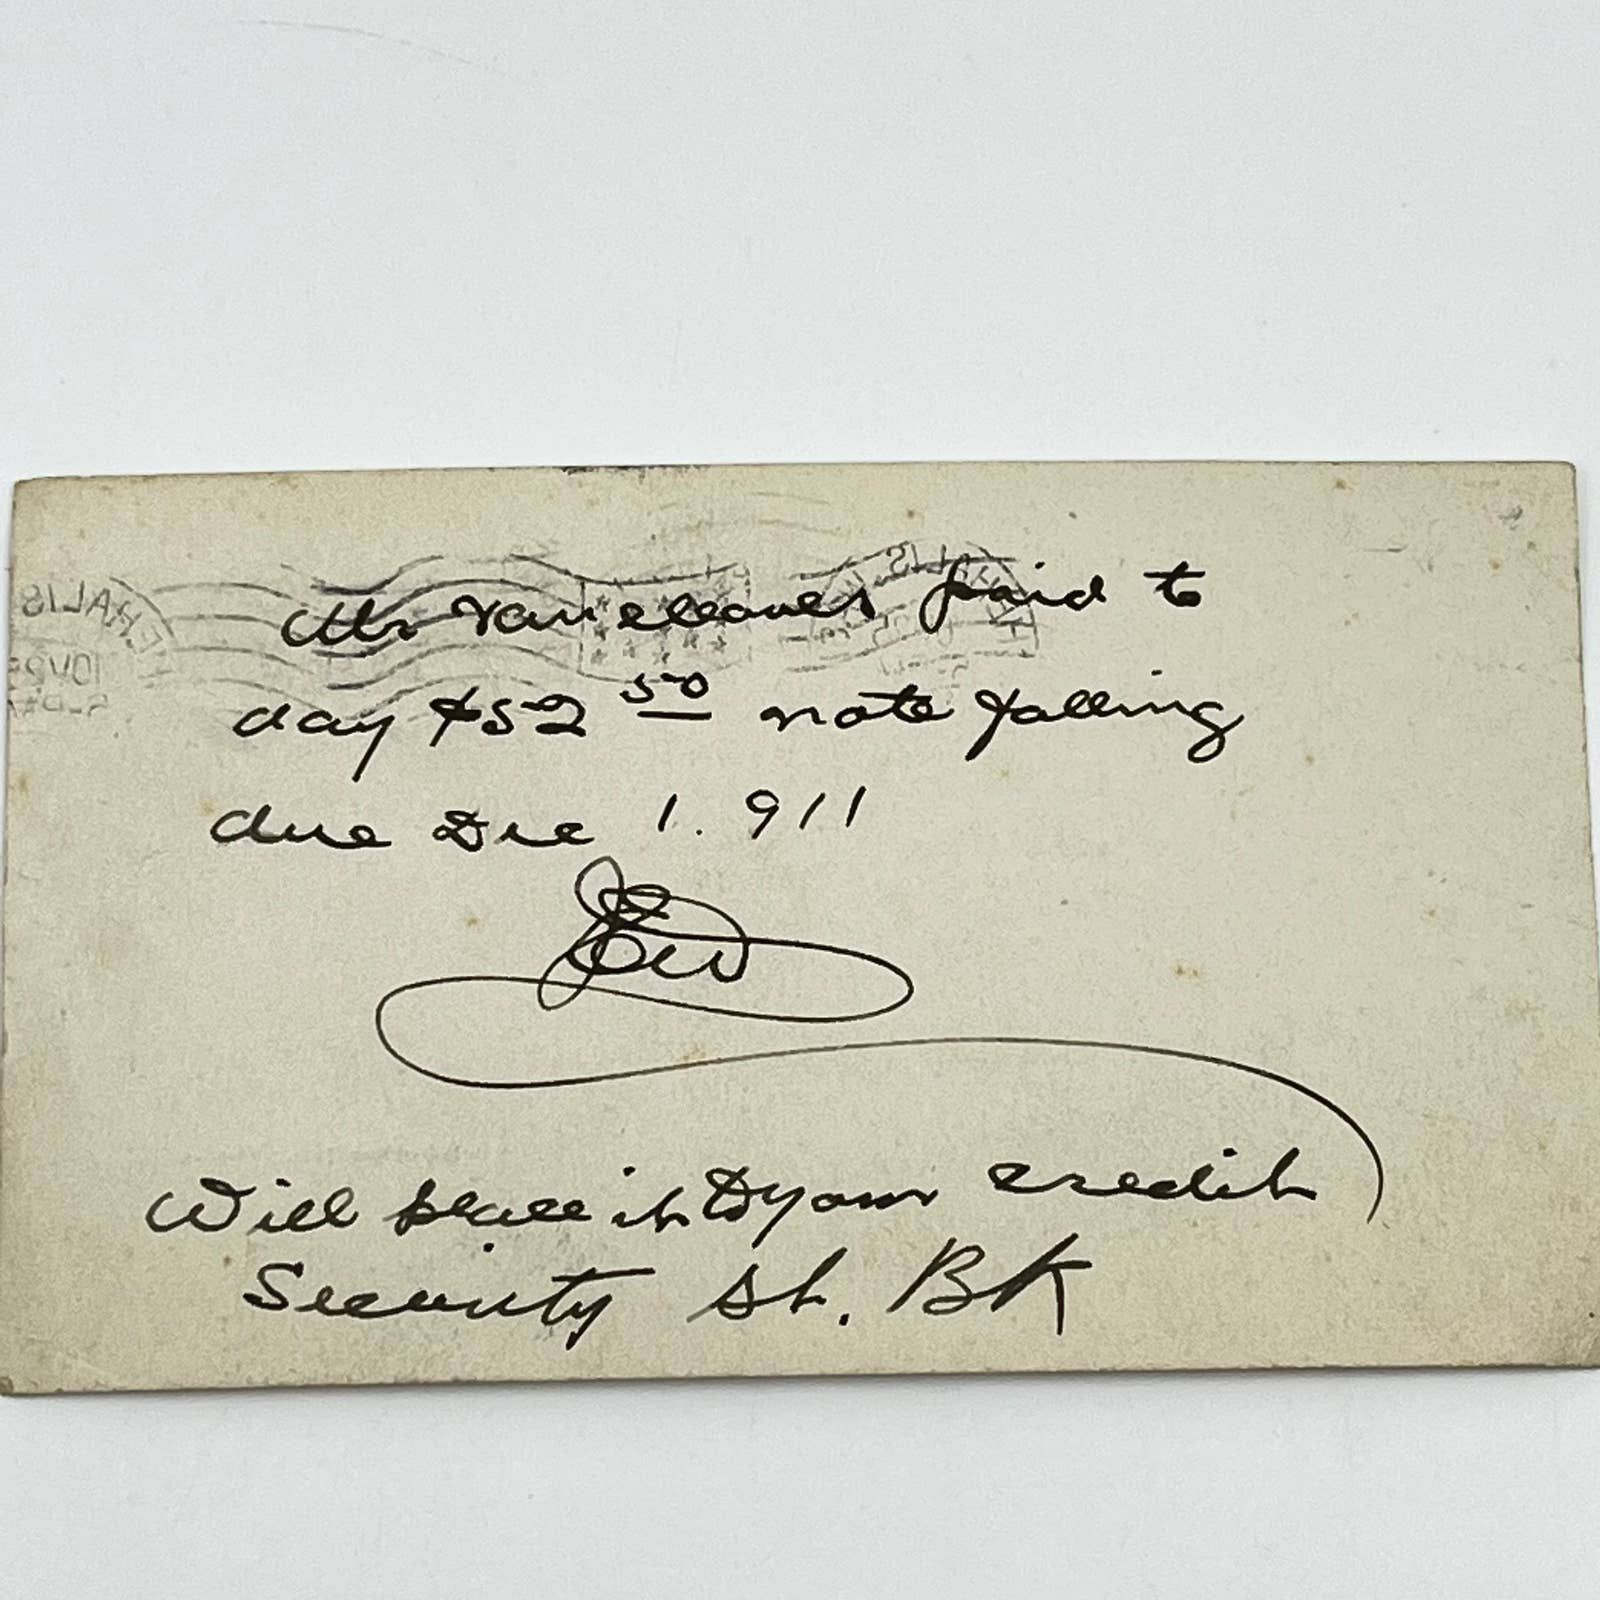 Mr Vancleaves paid to
day $52 50 note falling
due Dec 1. 911
Will place it to your credit
Security St. BK